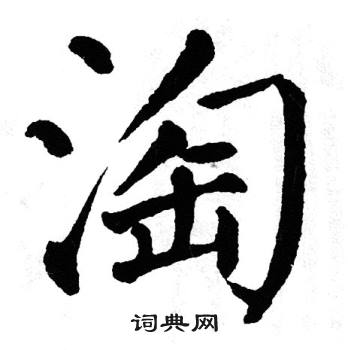 淘
词典网